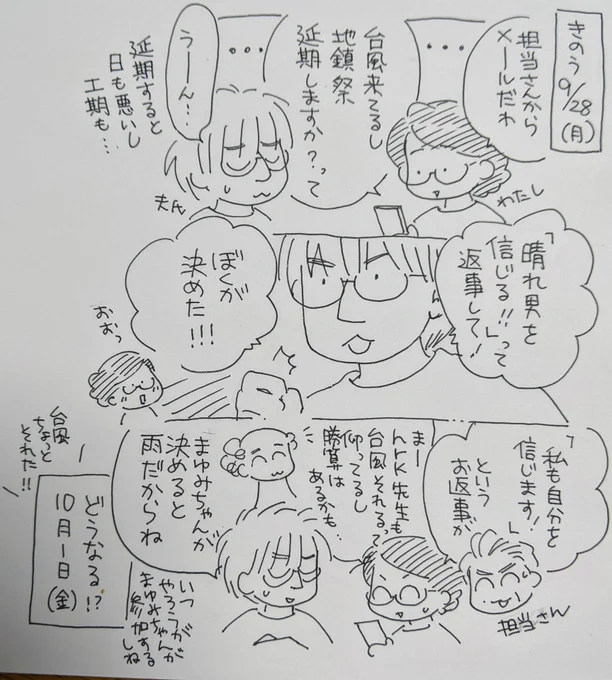 きのう
9/28
(月)
担当さんから
メールだわ
・・・
台風来てるし
地鎮祭
延期しますか？って
・・・
わたし
うーん…
延期すると
日も悪いし
工期も…
夫氏
「晴れ男を
信じる!!」って
返事して！
ぼくが
決めた!!!
おおっ
「私も自分を
信じます！」
という
お返事が
担当さん
まー
nrk先生も
台風それるって
仰ってるし
勝算は
あるかも…
まゆみちゃんが
決めると
雨だからね
いつ
やろうが
まゆみちゃんが
参加する
しね
台風
ちょっと
それた!!
どうなる!?
10月1日
(金)